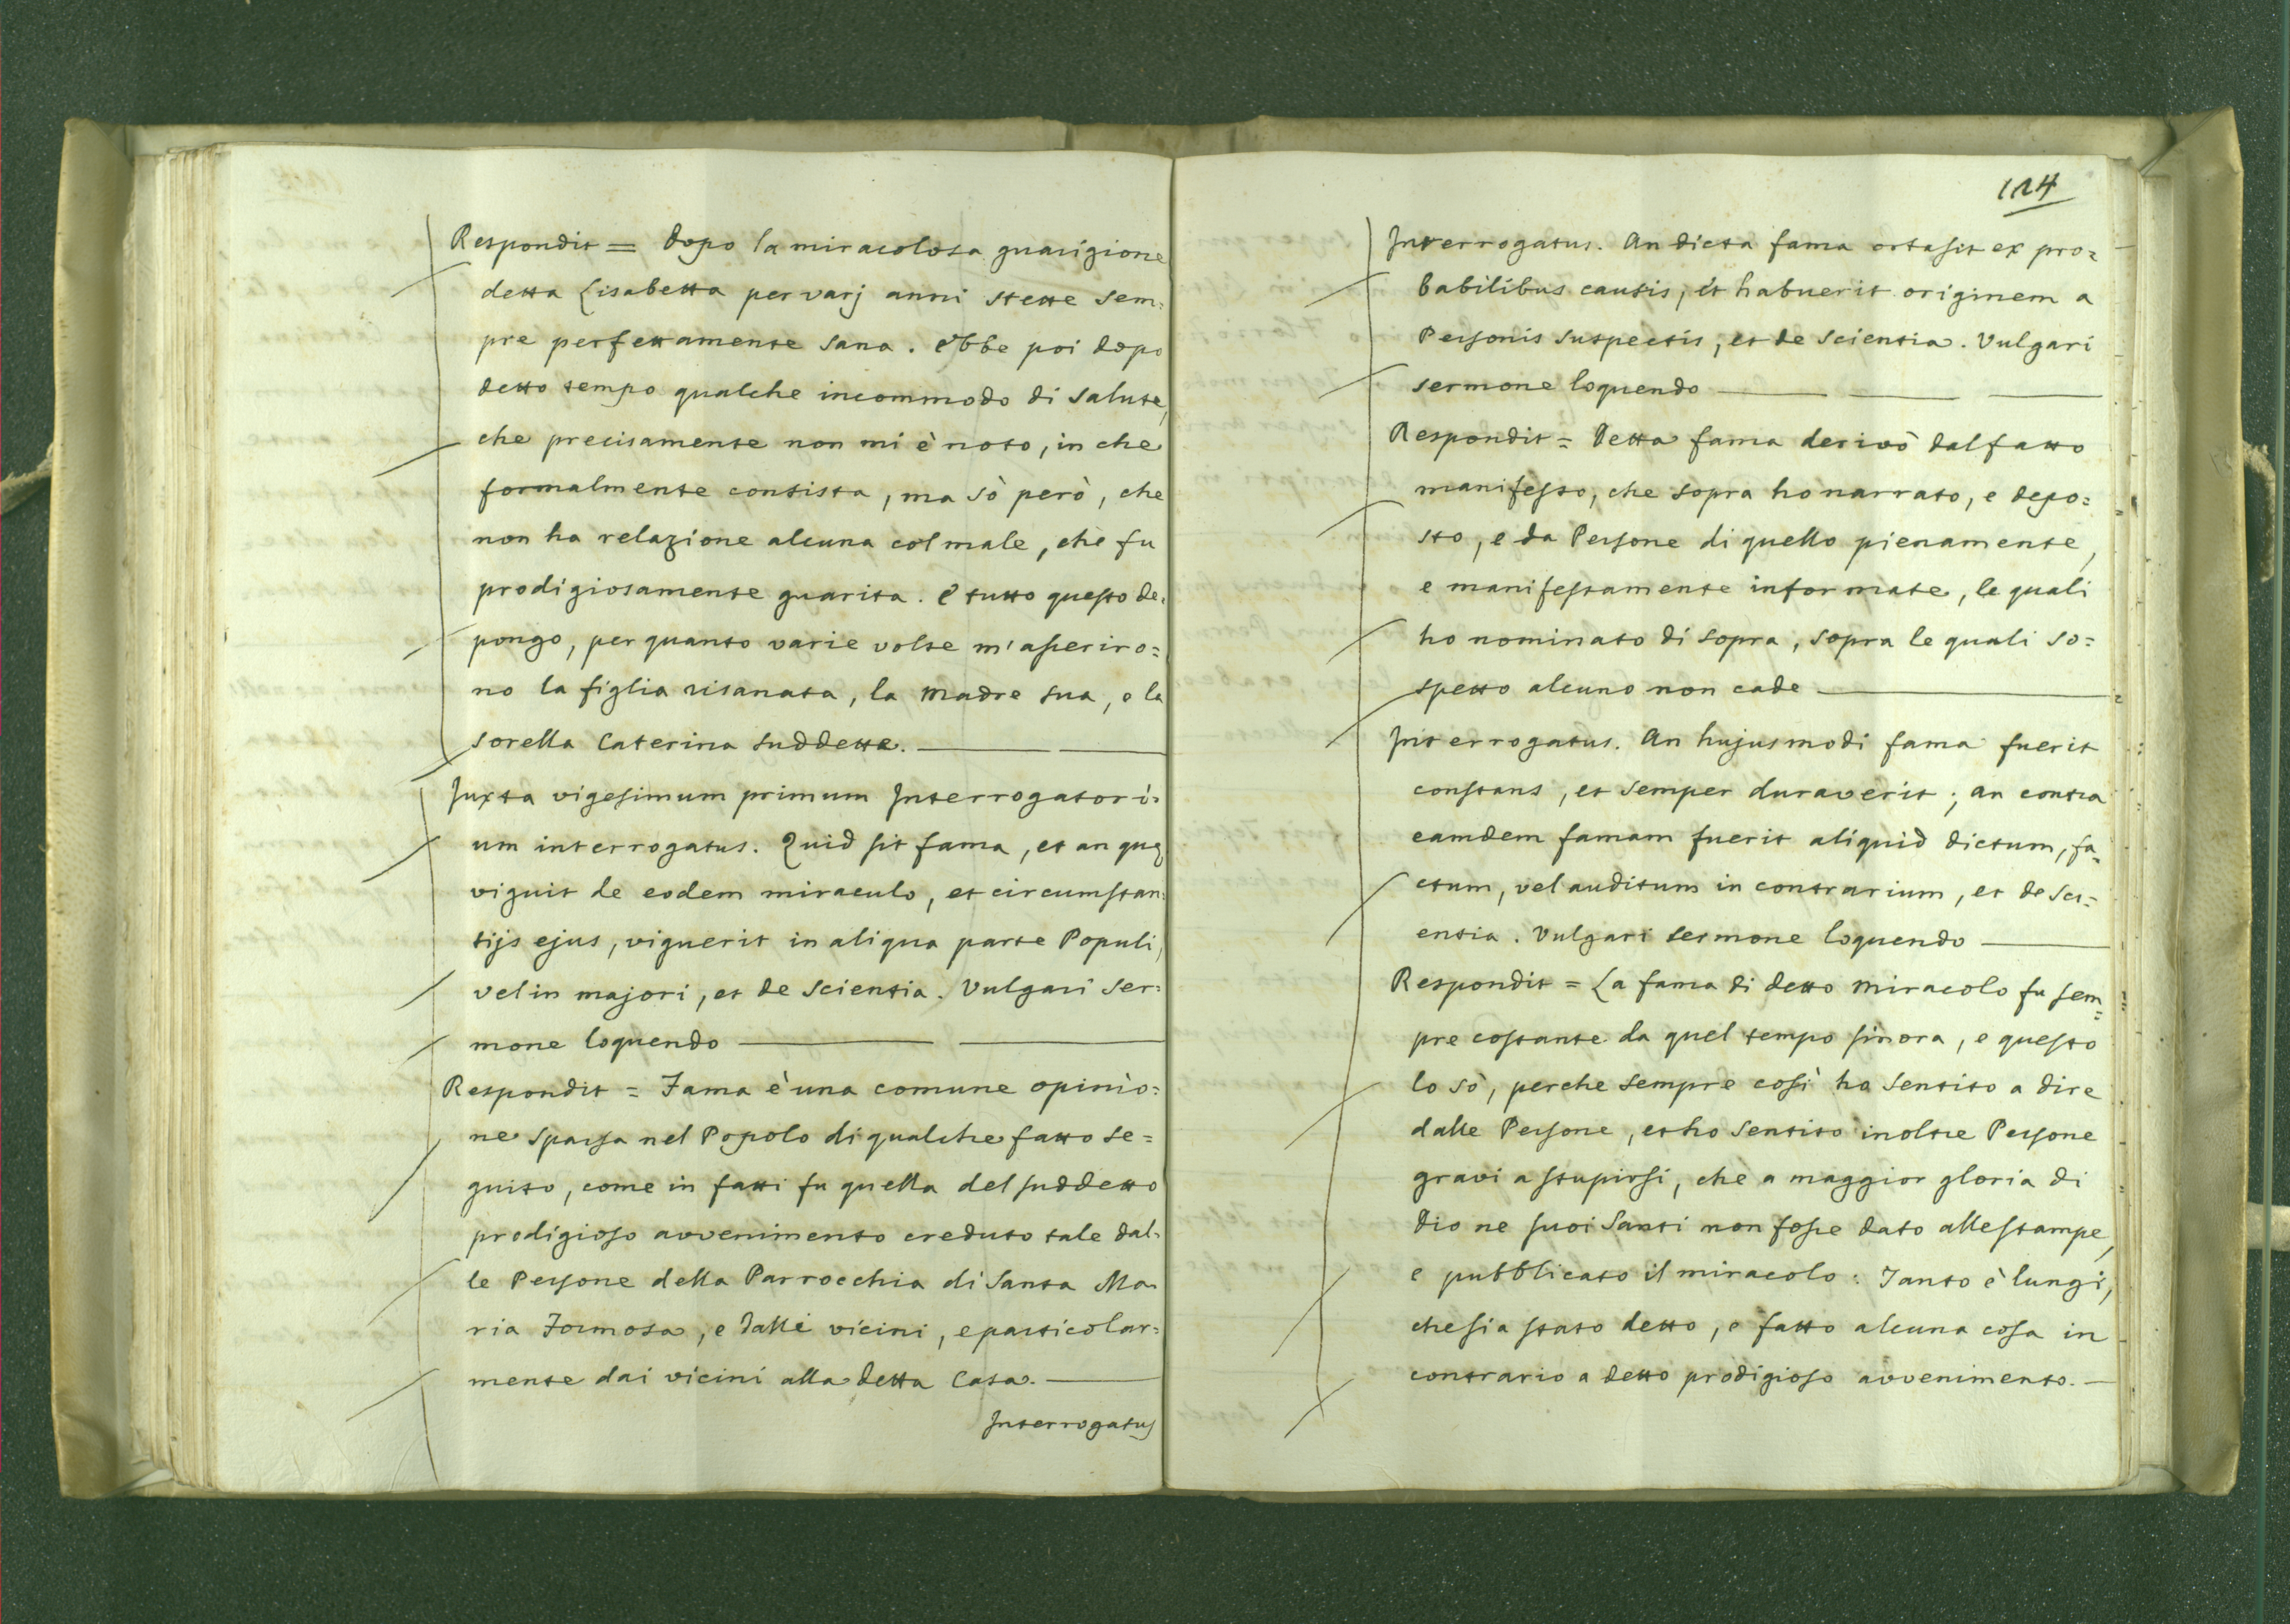 Respondit = Dopo la miracolosa guarigione
detta Lisabetta per varj anni stette sem=
pre perfettamente sana. Ebbe poi dopo
detto tempo qualche incommodo di salute,
che precisamente non mi è noto, in che
formalmente consista, ma sò però, che
non ha relazione alcuna col male, che fu
prodigiosamente guarita. E tutto questo de=
pongo, per quanto varie volte m'asseriro=
no la figlia risanata, la Madre sua, e la
sorella Caterina suddette.
Juxta vigesimum primum Interrogatori=
um interrogatus. Quid sit fama, et an quę
viguit de eodem miraculo, et circumstan=
tijs ejus, viguerit in aliqua parte Populi,
vel in majori, et de scientia. Vulgari ser=
mone loquendo
Respondit = Fama è una comune opinio=
ne sparsa nel Popolo di qualche fatto se=
guito, come in fatti fu quella del suddetto
prodigioso avvenimento creduto tale dal=
le Persone della Parrocchia di Santa Ma=
ria Formosa, e dalli vicini, e particolar=
mente dai vicini alla detta Casa.
Interrogatus
124
Interrogatus. An dicta fama orta sit ex pro=
babilibus causis, et habuerit originem a
Personis suspectis, et de scientia. Vulgari
sermone loquendo
Respondit = Detta fama derivò dal fatto
manifesto, che sopra ho narrato, e depo=
sto, e da Persone di quello pienamente,
e manifestamente informate, le quali
ho nominato di sopra, sopra le quali so=
spetto alcuno non cade
Interrogatus. An hujusmodi fama fuerit
constans, et semper duraverit; an contra
eamdem famam fuerit aliquid dictum, fa=
ctum, vel auditum in contrarium, et de sci=
entia. Vulgari sermone loquendo
Respondit = La fama di detto miracolo fu sem=
pre costante da quel tempo sinora, e questo
lo sò, perche sempre così ho sentito a dire
dalle Persone, et ho sentito inoltre Persone
gravi a stupirsi, che a maggior gloria di
Dio ne suoi Santi non fosse dato alle stampe,
e pubblicato il miracolo: Tanto è lungi,
che sia stato detto, o fatto alcuna cosa in
contrario a detto prodigioso avvenimento.